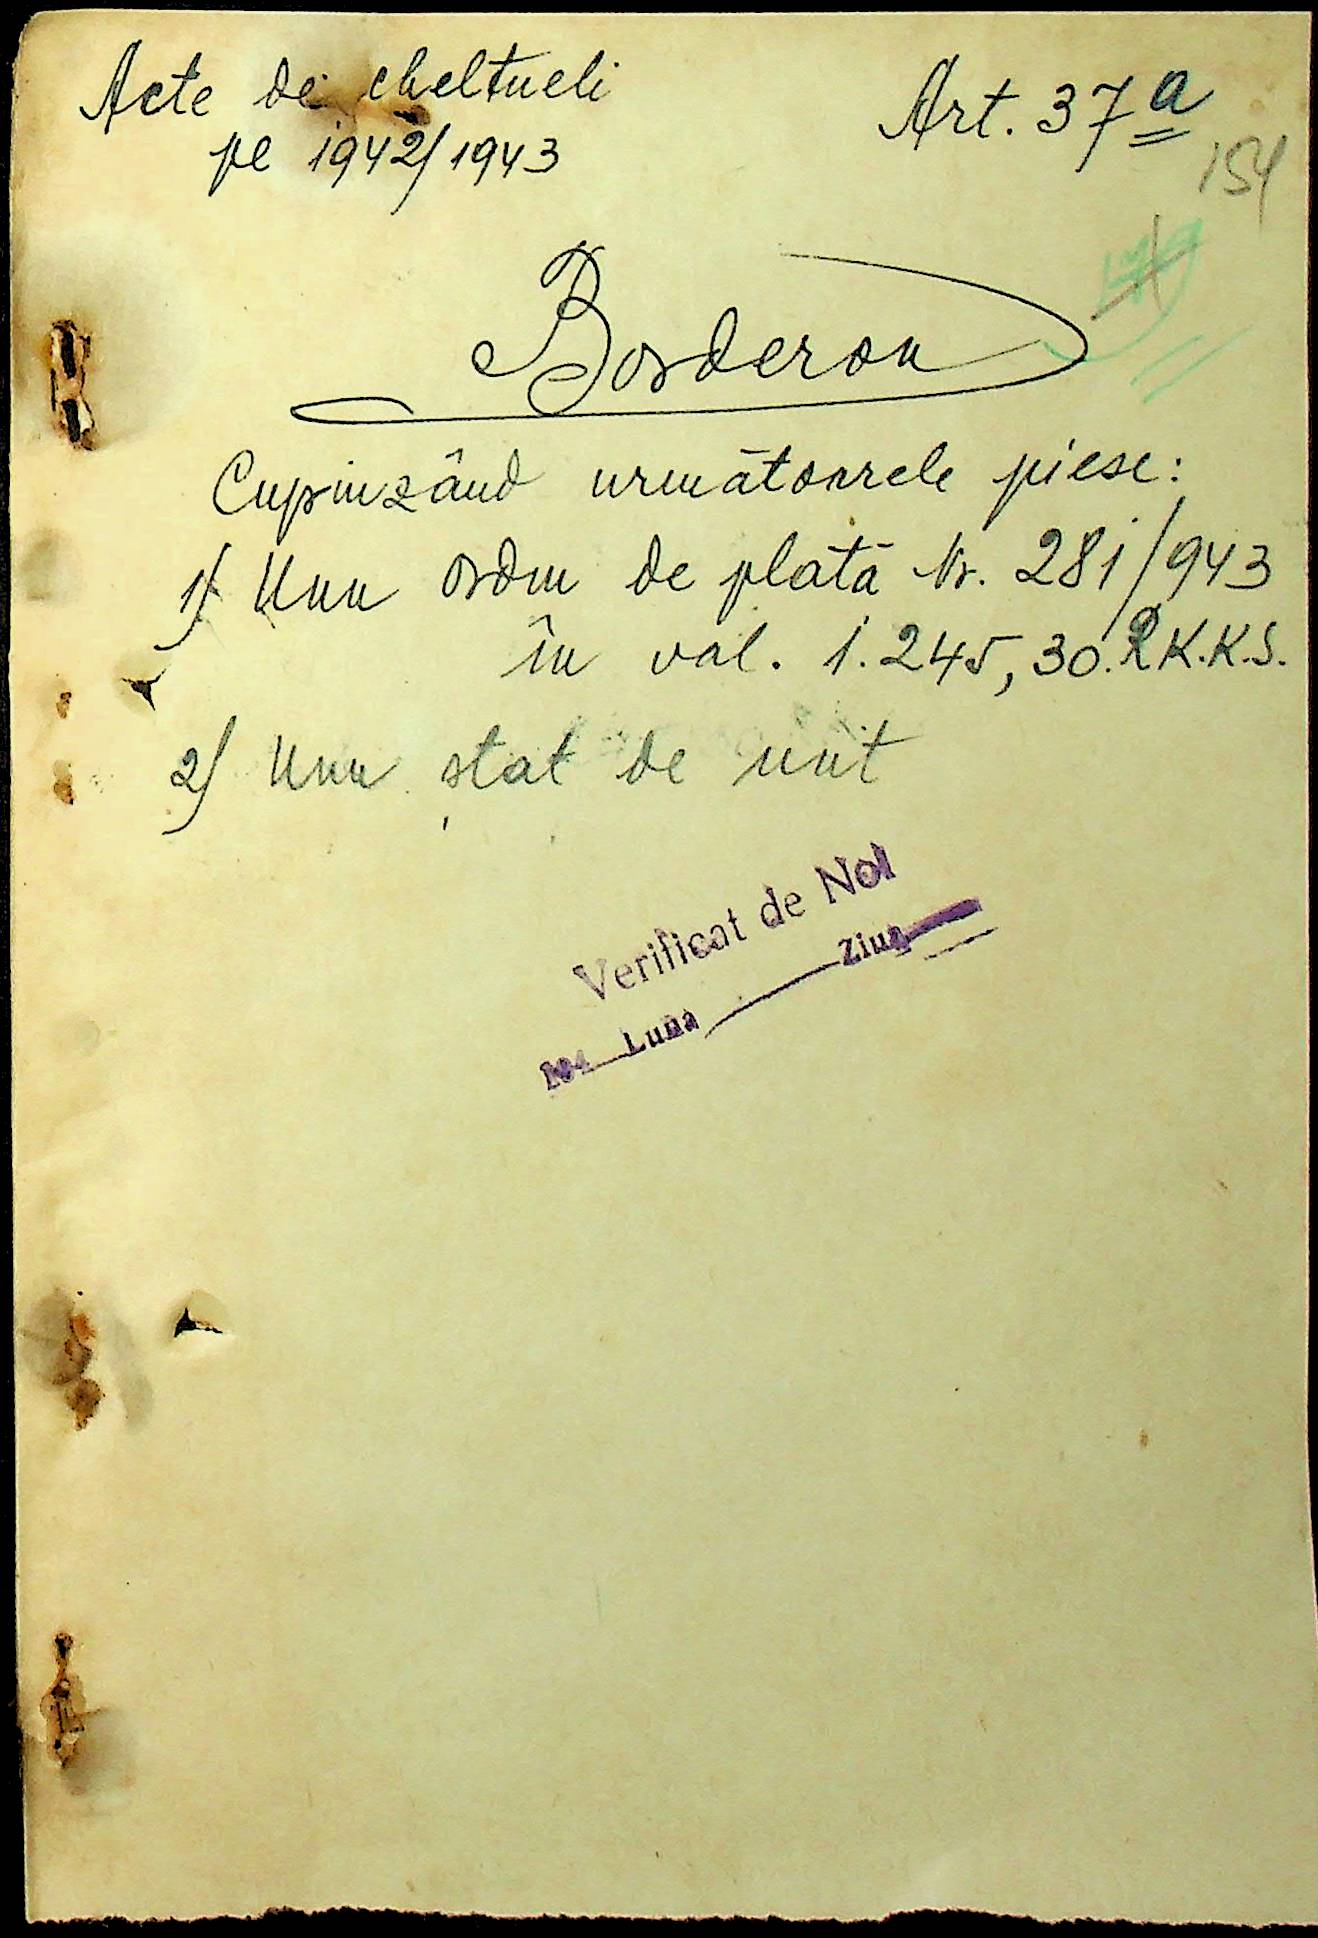 Acte de cheltueli
pe 1942/1943
Art. 37 a
154
Borderou
Cuprinzând următoarele piese:
1) Unu ordin de plată Nr. 281/943
în val. 1.245,30. R.K.K.S.
2) Unu ștat de unt
Verificat de Noi
194 Luna Ziua